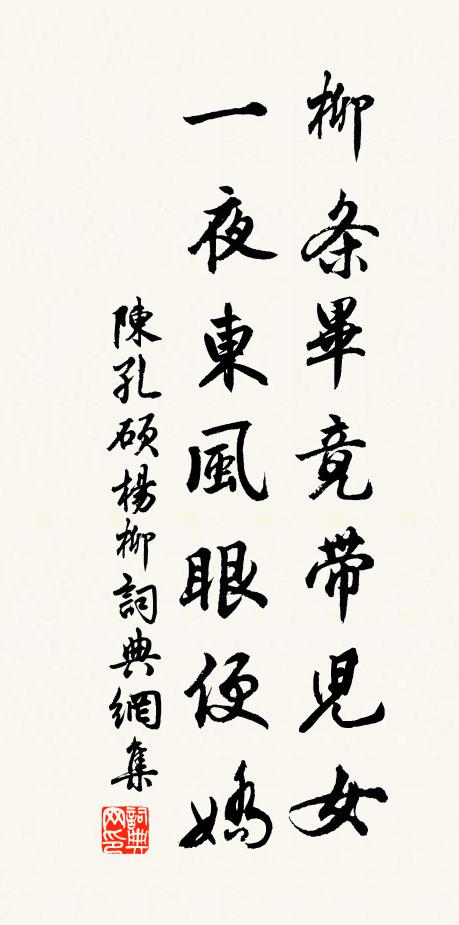 柳条畢竟帶児女
一夜東風眼便嬌
陳孔碩楊柳詞典網集
詞典網印